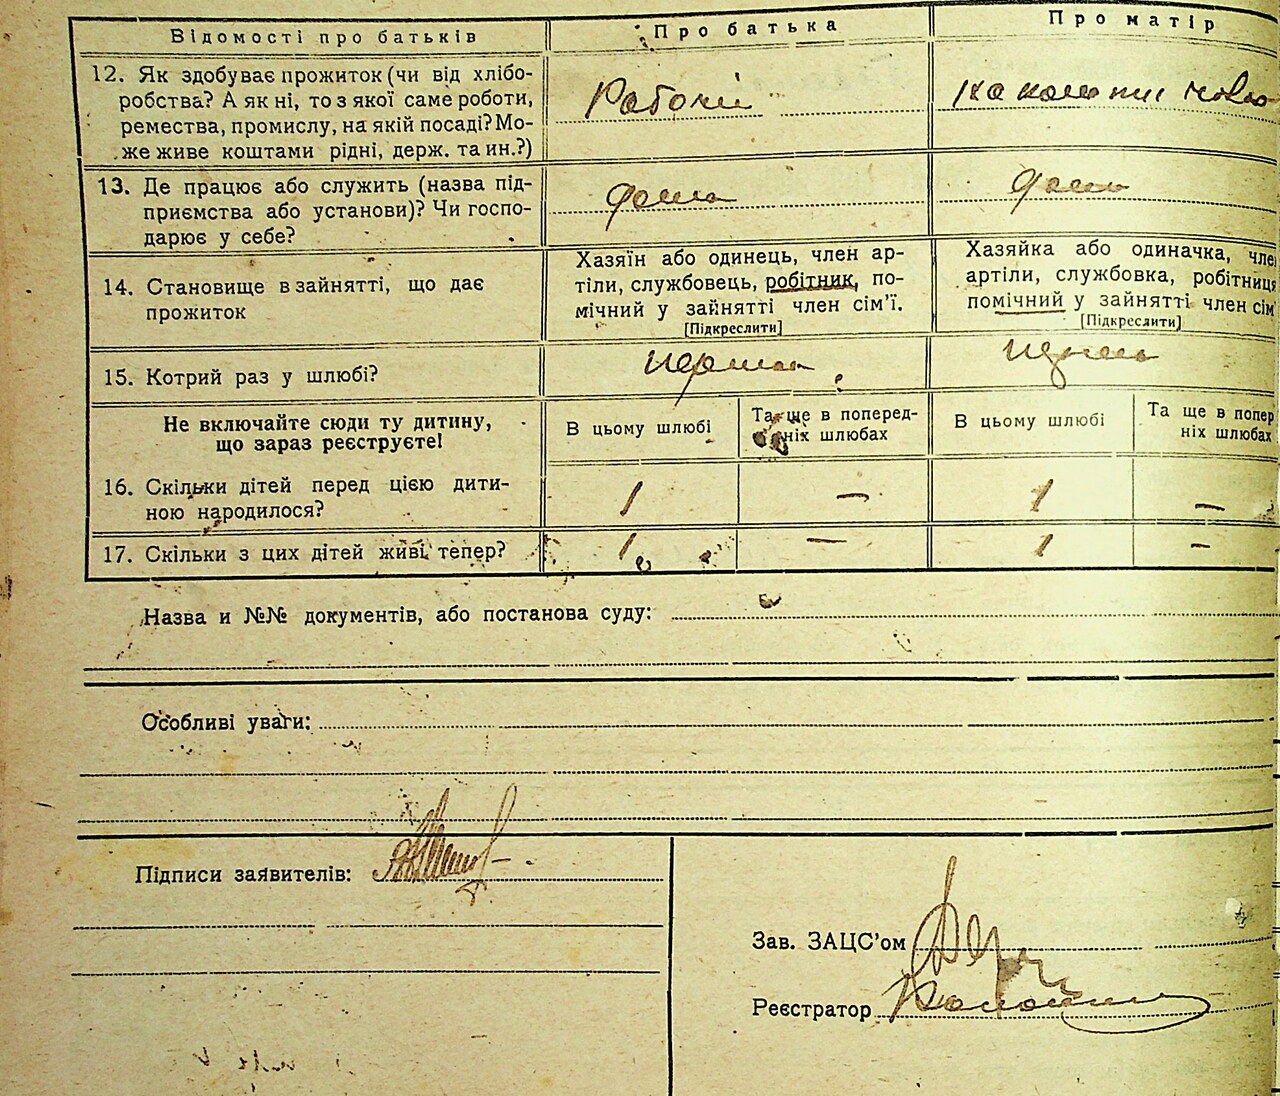 Відомості про батьків
Про батька
Про матір
12. Як здобуває прожиток (чи від хлібо-
робства? А як ні, то з якої саме роботи,
ремества, промислу, на якій посаді? Мо-
же живе коштами рідні, держ. та ин.?)
Рабочий
на
13. Де працює або служить (назва під-
приємства або установи)? Чи госпо-
дарює у себе?
дома
дома
14. Становище в зайнятті, що дає
прожиток
Хазяїн або одинець, член ар-
тіли, службовець, робітник, по-
мічний у зайнятті член сім'ї.
[Підкреслити]
Хазяйка або одиначка, чле
артіли, службовка, робітниця
помічний у зайнятті член сім'
[Підкреслити]
15. Котрий раз у шлюбі?
Не включайте сюди ту дитину,
що зараз реєструєте!
В цьому шлюбі
Та ще в поперед-
ніх шлюбах
В цьому шлюбі
Та ще в попер
ніх шлюбах
16. Скільки дітей перед цією дити-
ною народилося?
1 — 1 —
17. Скільки з цих дітей живі тепер?
1 — 1 —
Назва и №№ документів, або постанова суду:
Особливі уваги:
Підписи заявителів:
Зав. ЗАЦС'ом
Реєстратор